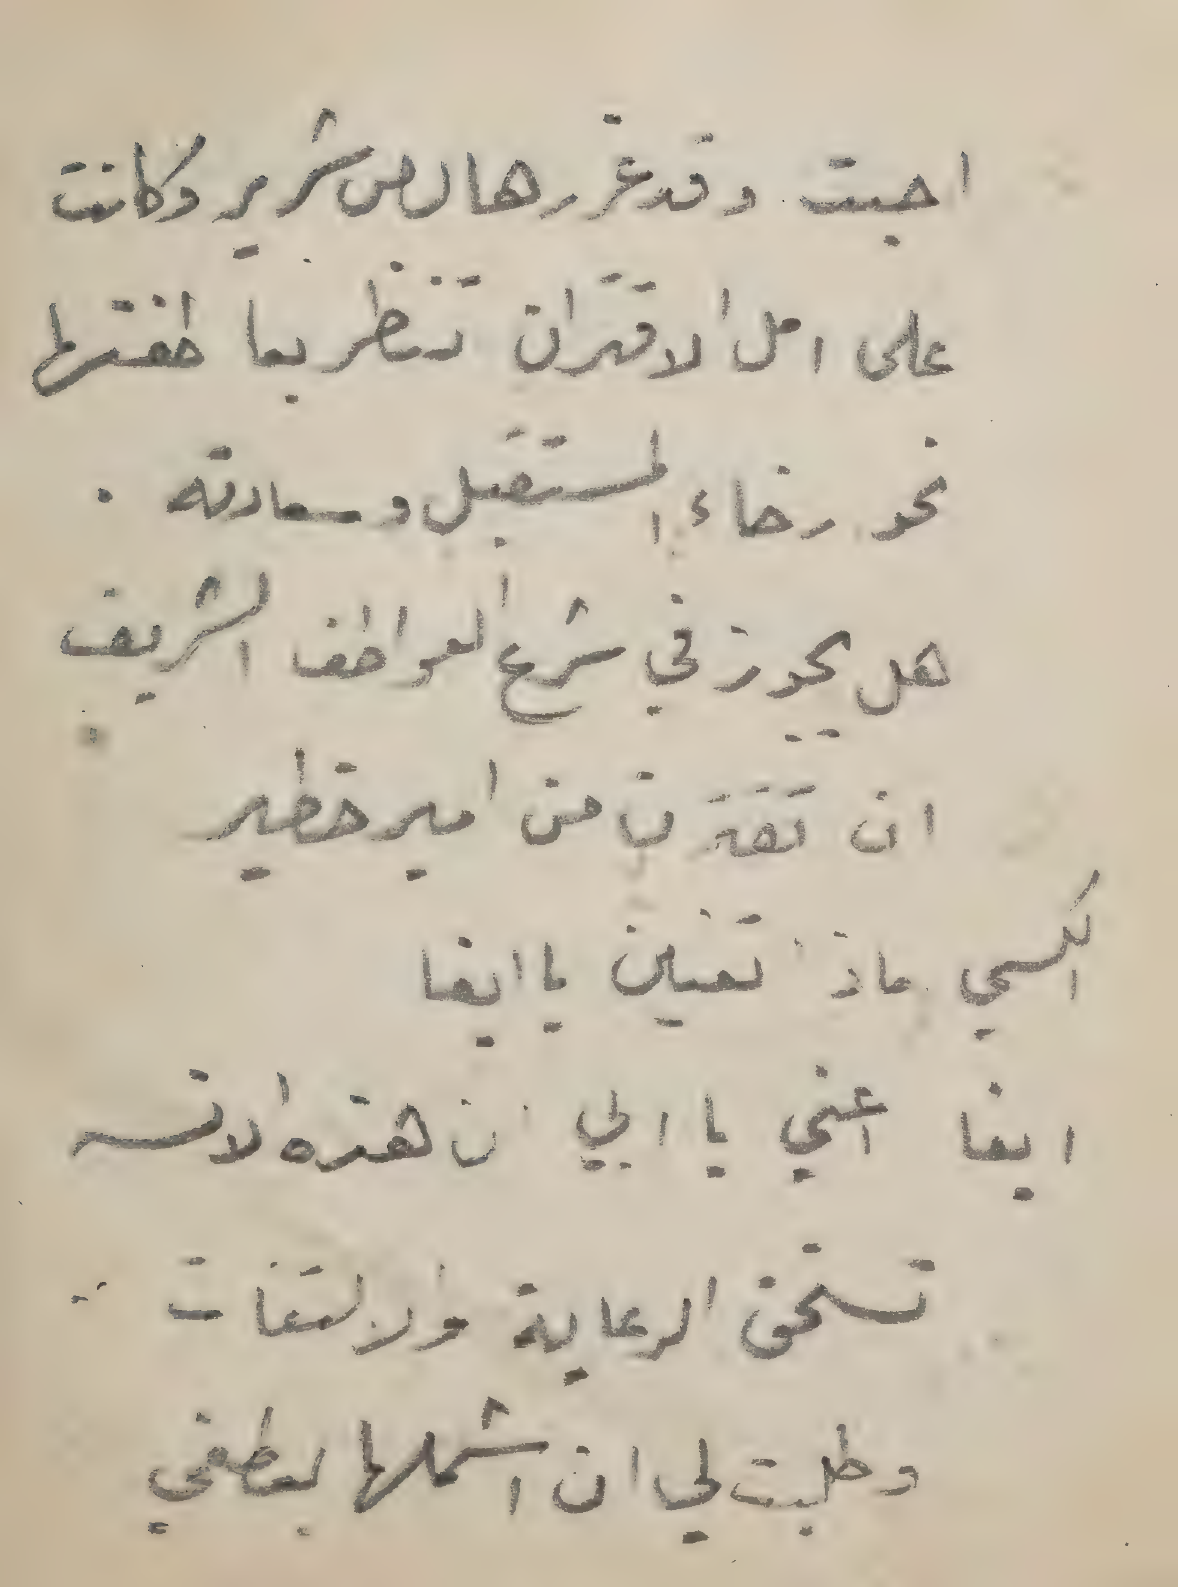 احبت وقد غرر بها لص شرير وكانت
على امل الاقتران تنظر بعاطفتها
نحو رخاء المستقبل وسعادته .
هل يجوز في شرع العواطف الشريف
ان تقترن من امير خطير
الكسي ماذا تعنين يا ايفا
ايفا اعني يا ابي ان هذه الانسه
تستحق الرعاية والالتفات ..
وطلبت لي ان اشملها بعطفي